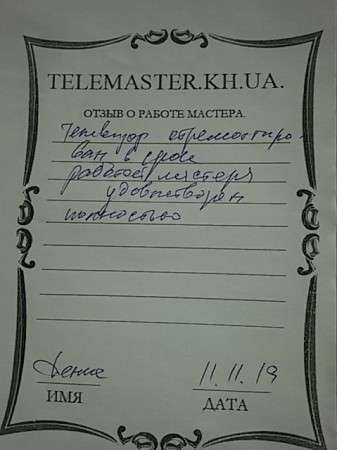 TELEMASTER.KH.UA.
ОТЗЫВ О РАБОТЕ МАСТЕРА.
Телевизор отремонтиро-
ван в срок
работой мастера
удовлетворен
полностью
Денис 11.11.19
ИМЯ ДАТА